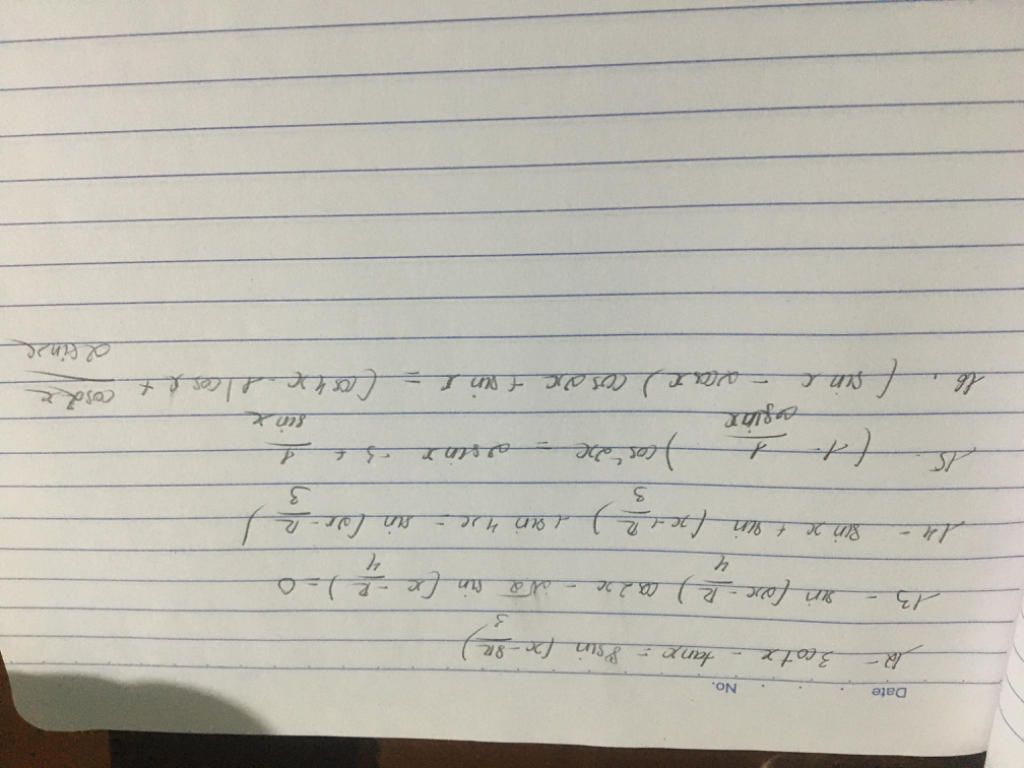 Date No.
12 - 3cotx - tanx = 8sin (x - 8π/3)
13 - sin (2x - π/4) cos2x - 2√2 sin (x - π/4) = 0
14 - sin x + sin (x + π/3) + sin 4x = sin (2x - π/3)
15 - (1 - 1/sinx) cos²2x = 2sinx - 3 + 1/sinx
16. (sin x - 2cosx) cos2x + sin x = (cos4x - 1) cosx + cos2x/2sinx